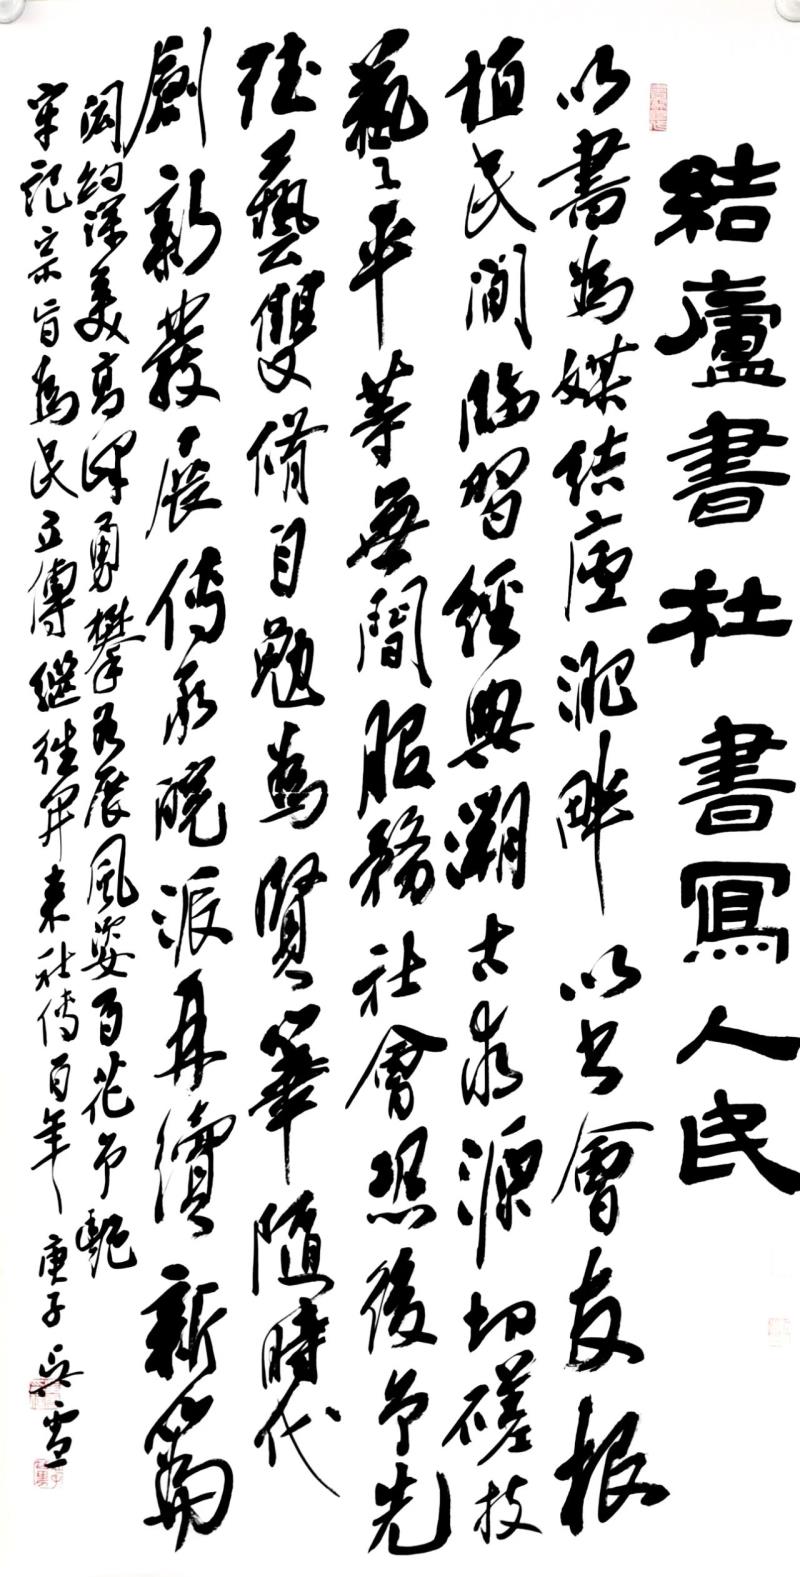 結廬書社書寫人民
以書為媒結廬淝畔以書會友根
植民間臨習經典溯古求源切磋技
藝平等無間服務社會恐後爭先
德藝雙修自勉為賢筆隨時代
創新發展傳承皖派再續新篇
閎約深美高峰勇攀各展風姿百花爭艷
牢記宗旨為民立傳繼往開來社傳百年 庚子 吳雪